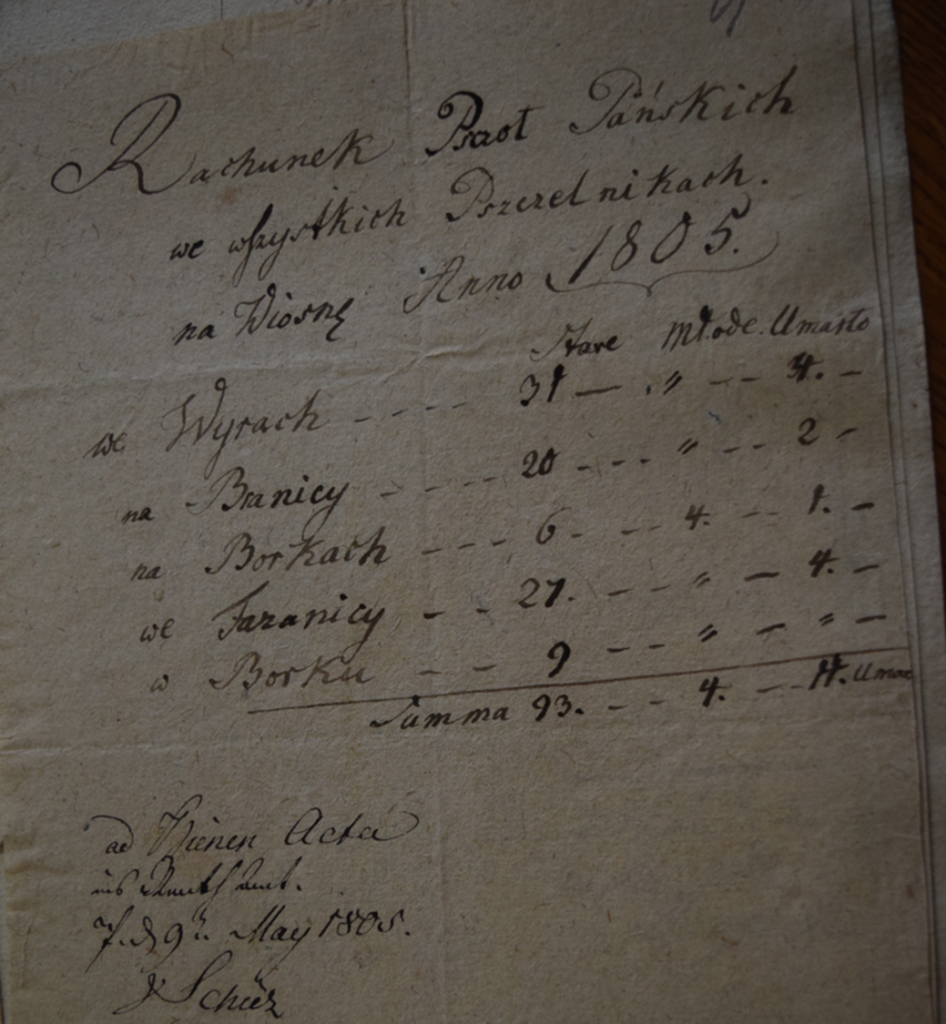 Rachunek Pscoł Pańskich
we wszystkich Pszczelnikach.
na Wiosnę Anno 1805.
Stare Młode. Umarło
we Wyrach - - - - 31 — .〃 - - 4. -
na Branicy - - - - 20 - - - 〃 - - 2 -
na Borkach - - - 6. - - 4. - - 1. -
we Fazanicy - - 27. - - 〃 - 4. -
w Borku - - 9 - - 〃 - 〃 -
Summa 93. - - 4. - - 11. Umar
ad Bienen Acta
ins Renth Amt.
9t. May 1805.
Schütz